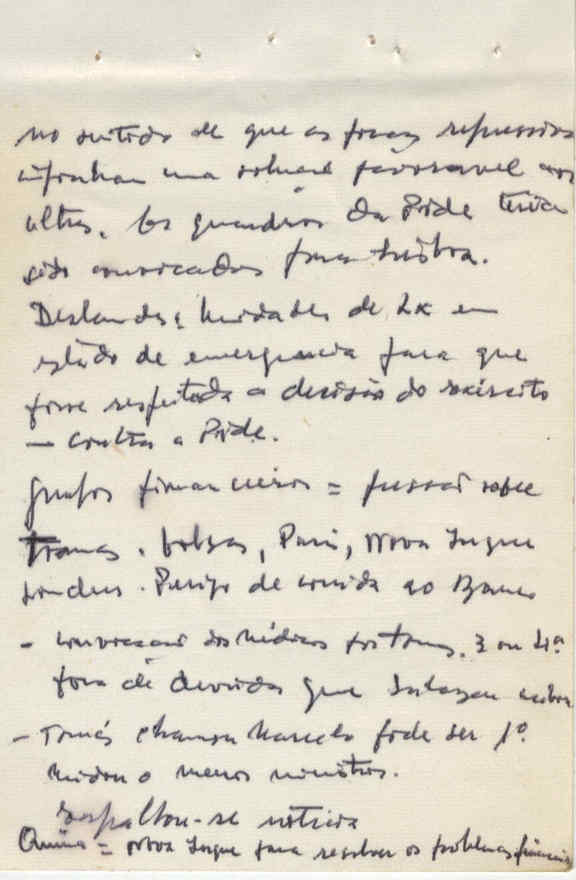 no sentido de que as forças repressivas
imponham uma solução favoravel aos
ultras. Os quadros da Pide teriam
sido convocados para Lisboa.
Deslandes: Unidades de Lx em
estado de emergencia para que
fosse respeitada a decisão do exército
— contra a Pide.
Grupos financeiros = pressão sobre
Tomás. bolsas, Paris, Nova Iorque
Londres. Perigo de corrida ao Banco
- convocação dos médicos por Tomás. 3 ou 4ª
fora de duvida que Salazar
- Tomás chamou Marcelo pode ser 1º
mudou o menos ministros.
Espalhou-se noticia
= Nova Iorque para resolver os problemas financeiros